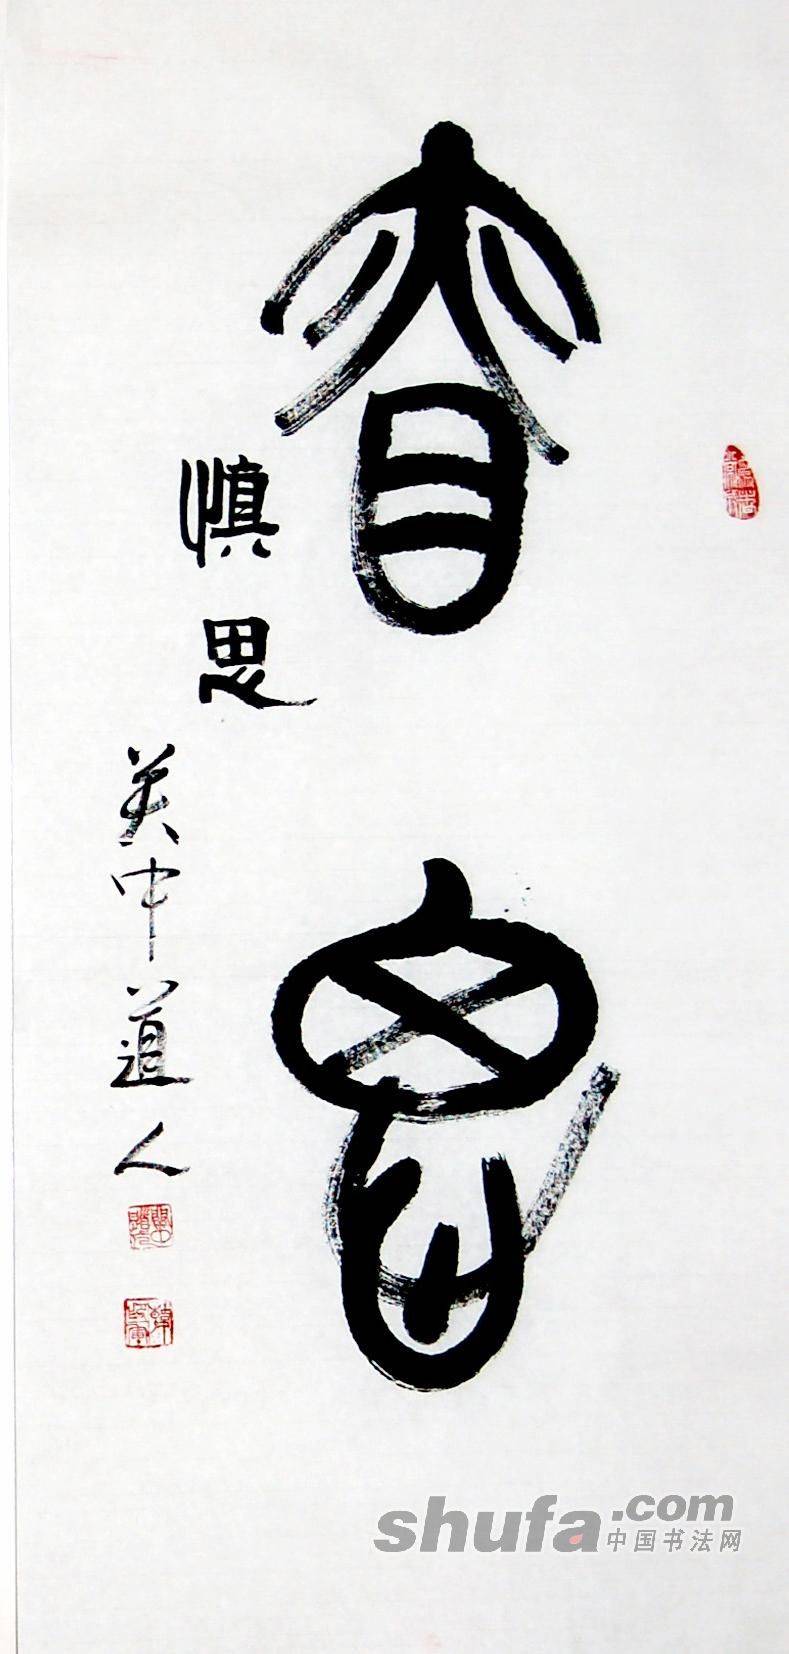 慎思
慎思
关中道人
shufa.com
中国书法网